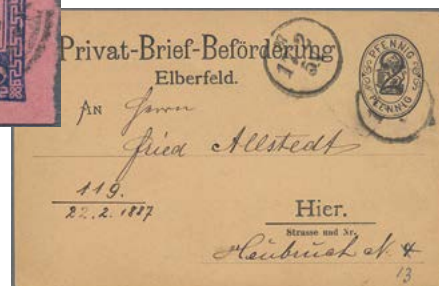 Privat-Brief-Beförderung
Elberfeld.
PFENNIG
2
PFENNIG
AN Herrn
Fried Allstedt
119.
22.2.1887
Hier.
Strasse und Nr.
13